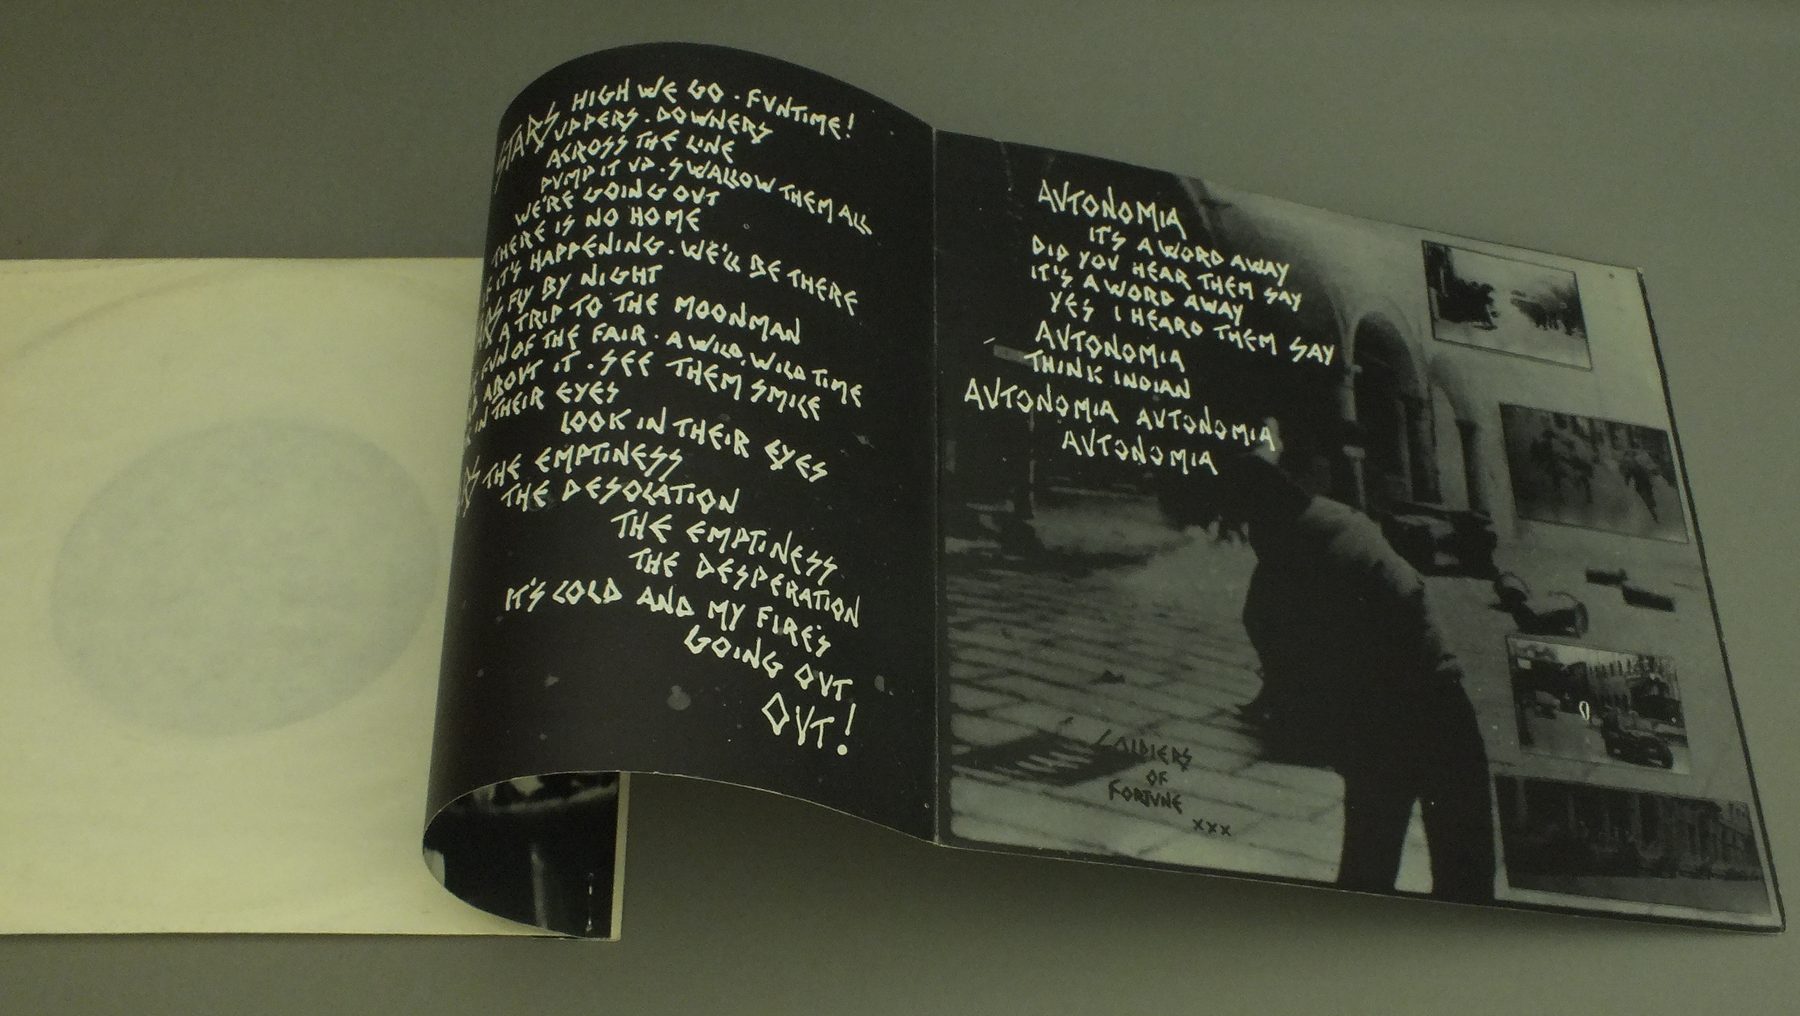 STARS HIGH WE GO . FUNTIME!
UPPERS . DOWNERS
ACROSS THE LINE
PUMP IT UP . SWALLOW THEM ALL
WE'RE GOING OUT
THERE IS NO HOME
IT'S HAPPENING . WE'LL BE THERE
FLY BY NIGHT
A TRIP TO THE MOONMAN
FUN OF THE FAIR . A WILD, WILD TIME
ABOUT IT . SEE THEM SMILE
IN THEIR EYES
LOOK IN THEIR EYES
THE EMPTINESS
THE DESOLATION
THE EMPTINESS
THE DESPERATION
IT'S COLD AND MY FIRE'S
GOING OUT
OUT!
AUTONOMIA
IT'S A WORD AWAY
DID YOU HEAR THEM SAY
IT'S A WORD AWAY
YES I HEARD THEM SAY
AUTONOMIA
THINK INDIAN
AUTONOMIA AUTONOMIA
AUTONOMIA
SOLDIERS
OF
FORTUNE
XXX